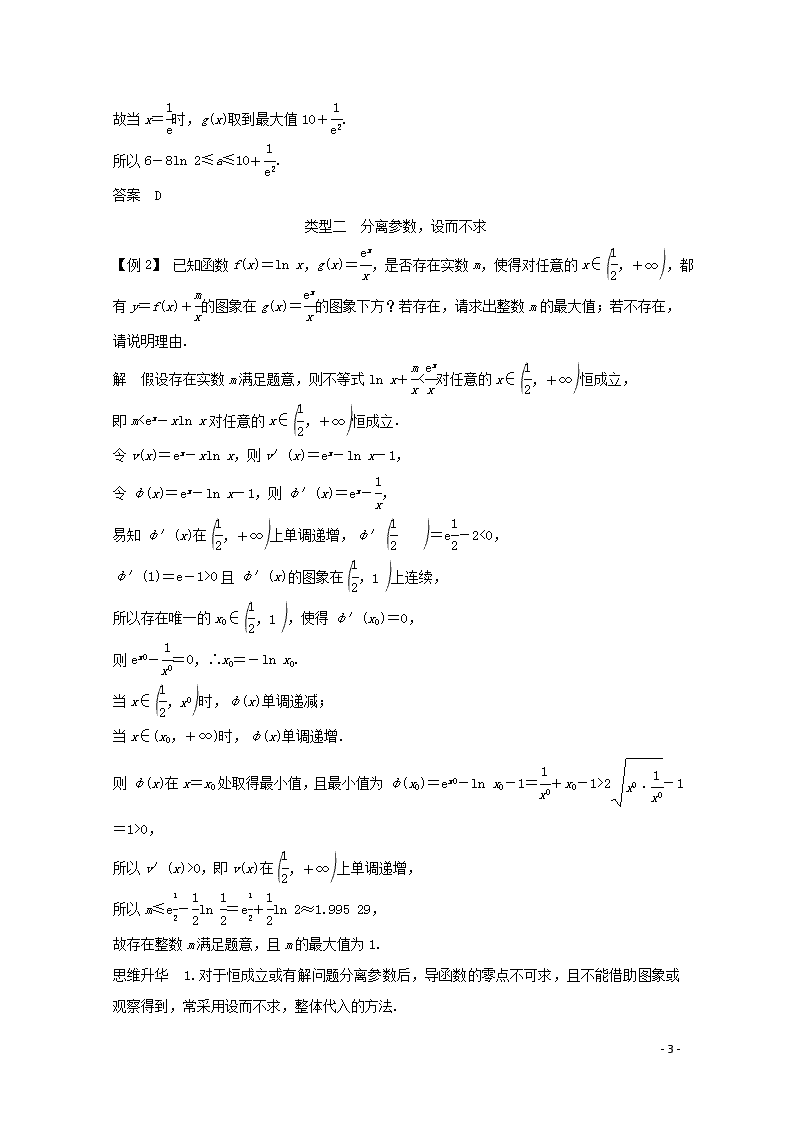 故当 x=1/e时,g(x)取到最大值 10+1/e².
所以 6-8ln 2≤a≤10+1/e².
答案 D
类型二 分离参数,设而不求
【例2】 已知函数 f(x)=ln x,g(x)=eˣ/x,是否存在实数 m,使得对任意的 x∈(1/2,+∞),都
有 y=f(x)+m/x的图象在 g(x)=eˣ/x的图象下方?若存在,请求出整数 m 的最大值;若不存在,
请说明理由.
解 假设存在实数 m 满足题意,则不等式 ln x+m/x<eˣ/x对任意的 x∈(1/2,+∞)恒成立,
即 m<eˣ-xln x 对任意的 x∈(1/2,+∞)恒成立.
令 v(x)=eˣ-xln x,则 v′(x)=eˣ-ln x-1,
令 φ(x)=eˣ-ln x-1,则 φ′(x)=eˣ-1/x,
易知 φ′(x)在(1/2,+∞)上单调递增,φ′(1/2)=e^(1/2)-2<0,
φ′(1)=e-1>0 且 φ′(x)的图象在(1/2,1)上连续,
所以存在唯一的 x₀∈(1/2,1),使得 φ′(x₀)=0,
则 e^x0-1/x0=0,∴x₀=-ln x₀.
当 x∈(1/2,x0)时,φ(x)单调递减;
当 x∈(x₀,+∞)时,φ(x)单调递增.
则 φ(x)在 x=x₀处取得最小值,且最小值为 φ(x₀)=e^x0-ln x₀-1=1/x0+x₀-1>2√(x0·1/x0)-1
=1>0,
所以 v′(x)>0,即 v(x)在(1/2,+∞)上单调递增,
所以 m≤e^(1/2)-1/2ln 1/2=e^(1/2)+1/2ln 2≈1.995 29,
故存在整数 m 满足题意,且 m 的最大值为 1.
思维升华 1.对于恒成立或有解问题分离参数后,导函数的零点不可求,且不能借助图象或
观察得到,常采用设而不求,整体代入的方法.
- 3 -